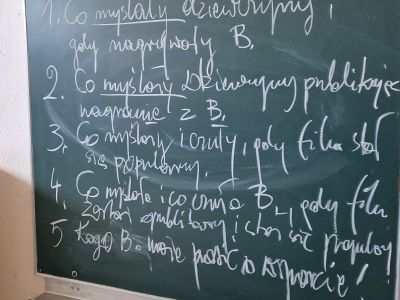 1. Co myślały dziewczyny,
gdy nagrywały B.
2. Co myślały dziewczyny publikując
nagranie z B.
3. Co myślały i czuły, gdy film stał
się popularny.
4. Co myślała i co czuła B., gdy film
został opublikowany i stał się popularny
5. Kogo B. może prosić o wsparcie!